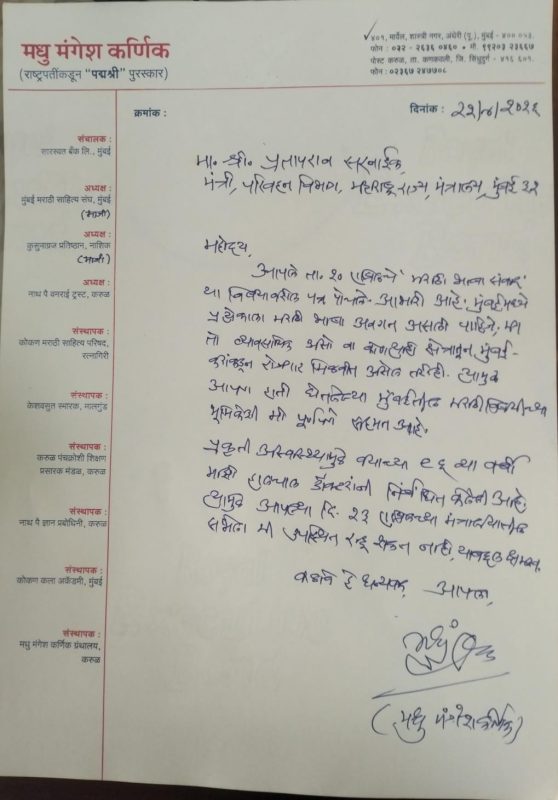 मधु मंगेश कर्णिक
(राष्ट्रपतींकडून "पद्मश्री" पुरस्कार)
४०१, मार्वल, शास्त्री नगर, अंधेरी (पू.), मुंबई - ४०० ०५३.
फोन : ०२२ - २६३६ ०४६० • मो. ९९२०३ २३६६७
पोस्ट करुळ, ता. कणकवली, जि. सिंधुदुर्ग - ४१६ ६०१.
फोन : ०२३६७ २४७७०८
क्रमांक :
दिनांक : २२/४/२०२६
संचालक :
सारस्वत बँक लि., मुंबई
अध्यक्ष :
मुंबई मराठी साहित्य संघ, मुंबई
(माजी)
अध्यक्ष :
कुसुमाग्रज प्रतिष्ठान, नाशिक
(माजी)
अध्यक्ष :
नाथ पै वनराई ट्रस्ट, करुळ
संस्थापक :
कोकण मराठी साहित्य परिषद,
रत्नागिरी
संस्थापक :
केशवसुत स्मारक, मालगुंड
संस्थापक :
करुळ पंचक्रोशी शिक्षण
प्रसारक मंडळ, करुळ
संस्थापक :
नाथ पै ज्ञान प्रबोधिनी, करुळ
संस्थापक :
कोकण कला अकॅडमी, मुंबई
संस्थापक :
मधु मंगेश कर्णिक ग्रंथालय,
करुळ
मा. श्री. प्रतापराव सरनाईक,
मंत्री, परिवहन विभाग, महाराष्ट्र राज्य, मंत्रालय, मुंबई ३२
महोदय,
आपले ता. २० एप्रिलचे मराठी भाषा
या विषयावरील पत्र पोचले. आभारी आहे. मुंबईमध्ये
प्रत्येकाला मराठी भाषा अवगत असली पाहिजे. मग
तो व्यावसायिक असो वा कोणत्याही क्षेत्रातून मुंबई-
रोजगार मिळवीत असेल तरीही. त्यामुळे
आपण हाती घेतलेल्या मुंबईतील मराठी
भूमिकेशी मी पूर्णपणे सहमत आहे.
प्रकृती अस्वास्थ्यामुळे वयाच्या ९६ व्या वर्षी
माझी हालचाल डॉक्टरांनी निर्बंधित केलेली आहे.
त्यामुळे आपल्या दि. २३ एप्रिलच्या मंत्रालयातील
सभेला मी उपस्थित राहू शकत नाही, याबद्दल क्षमस्व.
कळावे हे धन्यवाद. आपला,
(मधु मंगेश कर्णिक)